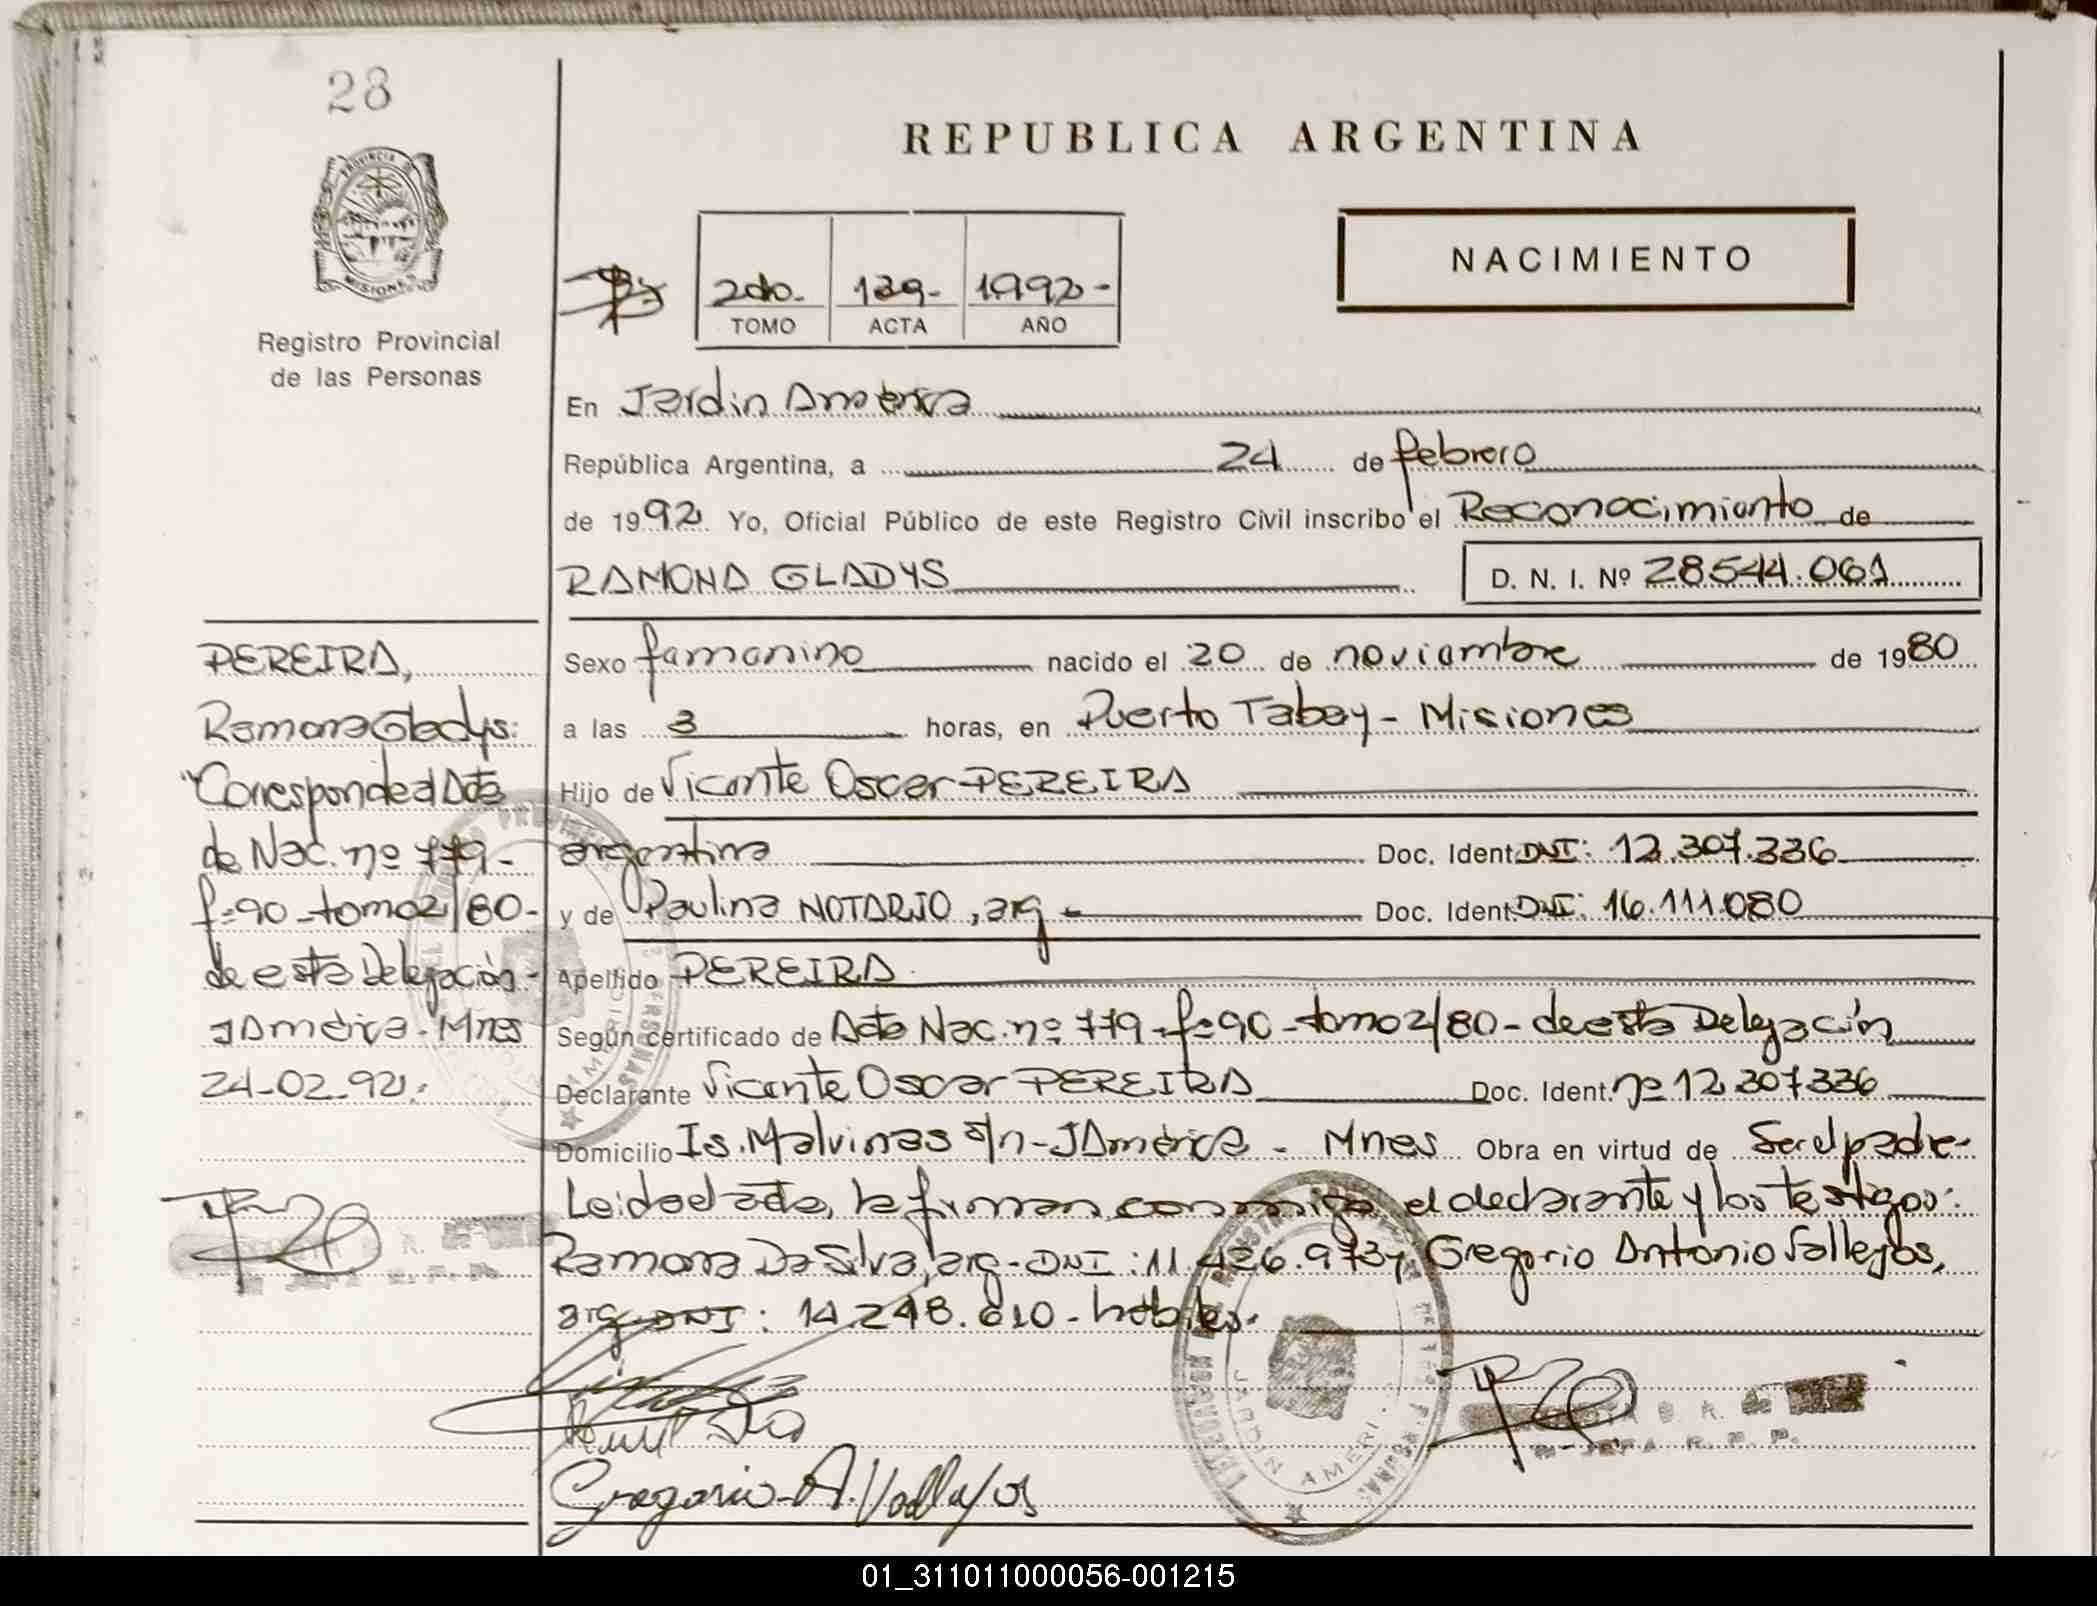 28
REPUBLICA ARGENTINA
PROVINCIA DE
MISIONES
NACIMIENTO
2do. 129- 1992-
TOMO ACTA AÑO
Registro Provincial
de las Personas
En Jardin America
República Argentina, a 24 de febrero
de 1992. Yo, Oficial Público de este Registro Civil inscribo el Reconocimiento de
RAMONA GLADYS
D. N. I. Nº 28544.061
PEREIRA,
Ramona Gladys:
"Corresponde al Acta
de Nac. nº 779-
fº90-tomo2/80-
de esta Delegación-
JAmérica-Mnes
24-02-92:
Sexo femenino nacido el 20 de noviembre de 1980
a las 3 horas, en Puerto Tabay - Misiones
Hijo de Vicente Oscar PEREIRA
argentina Doc. Ident. DNI: 12.307.336
y de Paulina NOTARIO, arg - Doc. Ident. DNI: 16.111.080
Apellido PEREIRA
Según certificado de Acta Nac. nº 779-fº90-tomo2/80-de esta Delegación
Declarante Vicente Oscar PEREIRA Doc. Ident. nº 12.307.336
Domicilio Is. Malvinas s/n-JAmérica - Mnes Obra en virtud de Ser el padre-
Leida el acta, la firman conmigo el declarante y los testigos:
Ramona Da Silva, arg-DNI: 11.426.973 y Gregorio Antonio Vallejos,
arg-DNI: 14.248.610-hábiles.
Gregorio A. Vallejos
JARDIN AMERI
JEFA R. P. P.
01_311011000056-001215